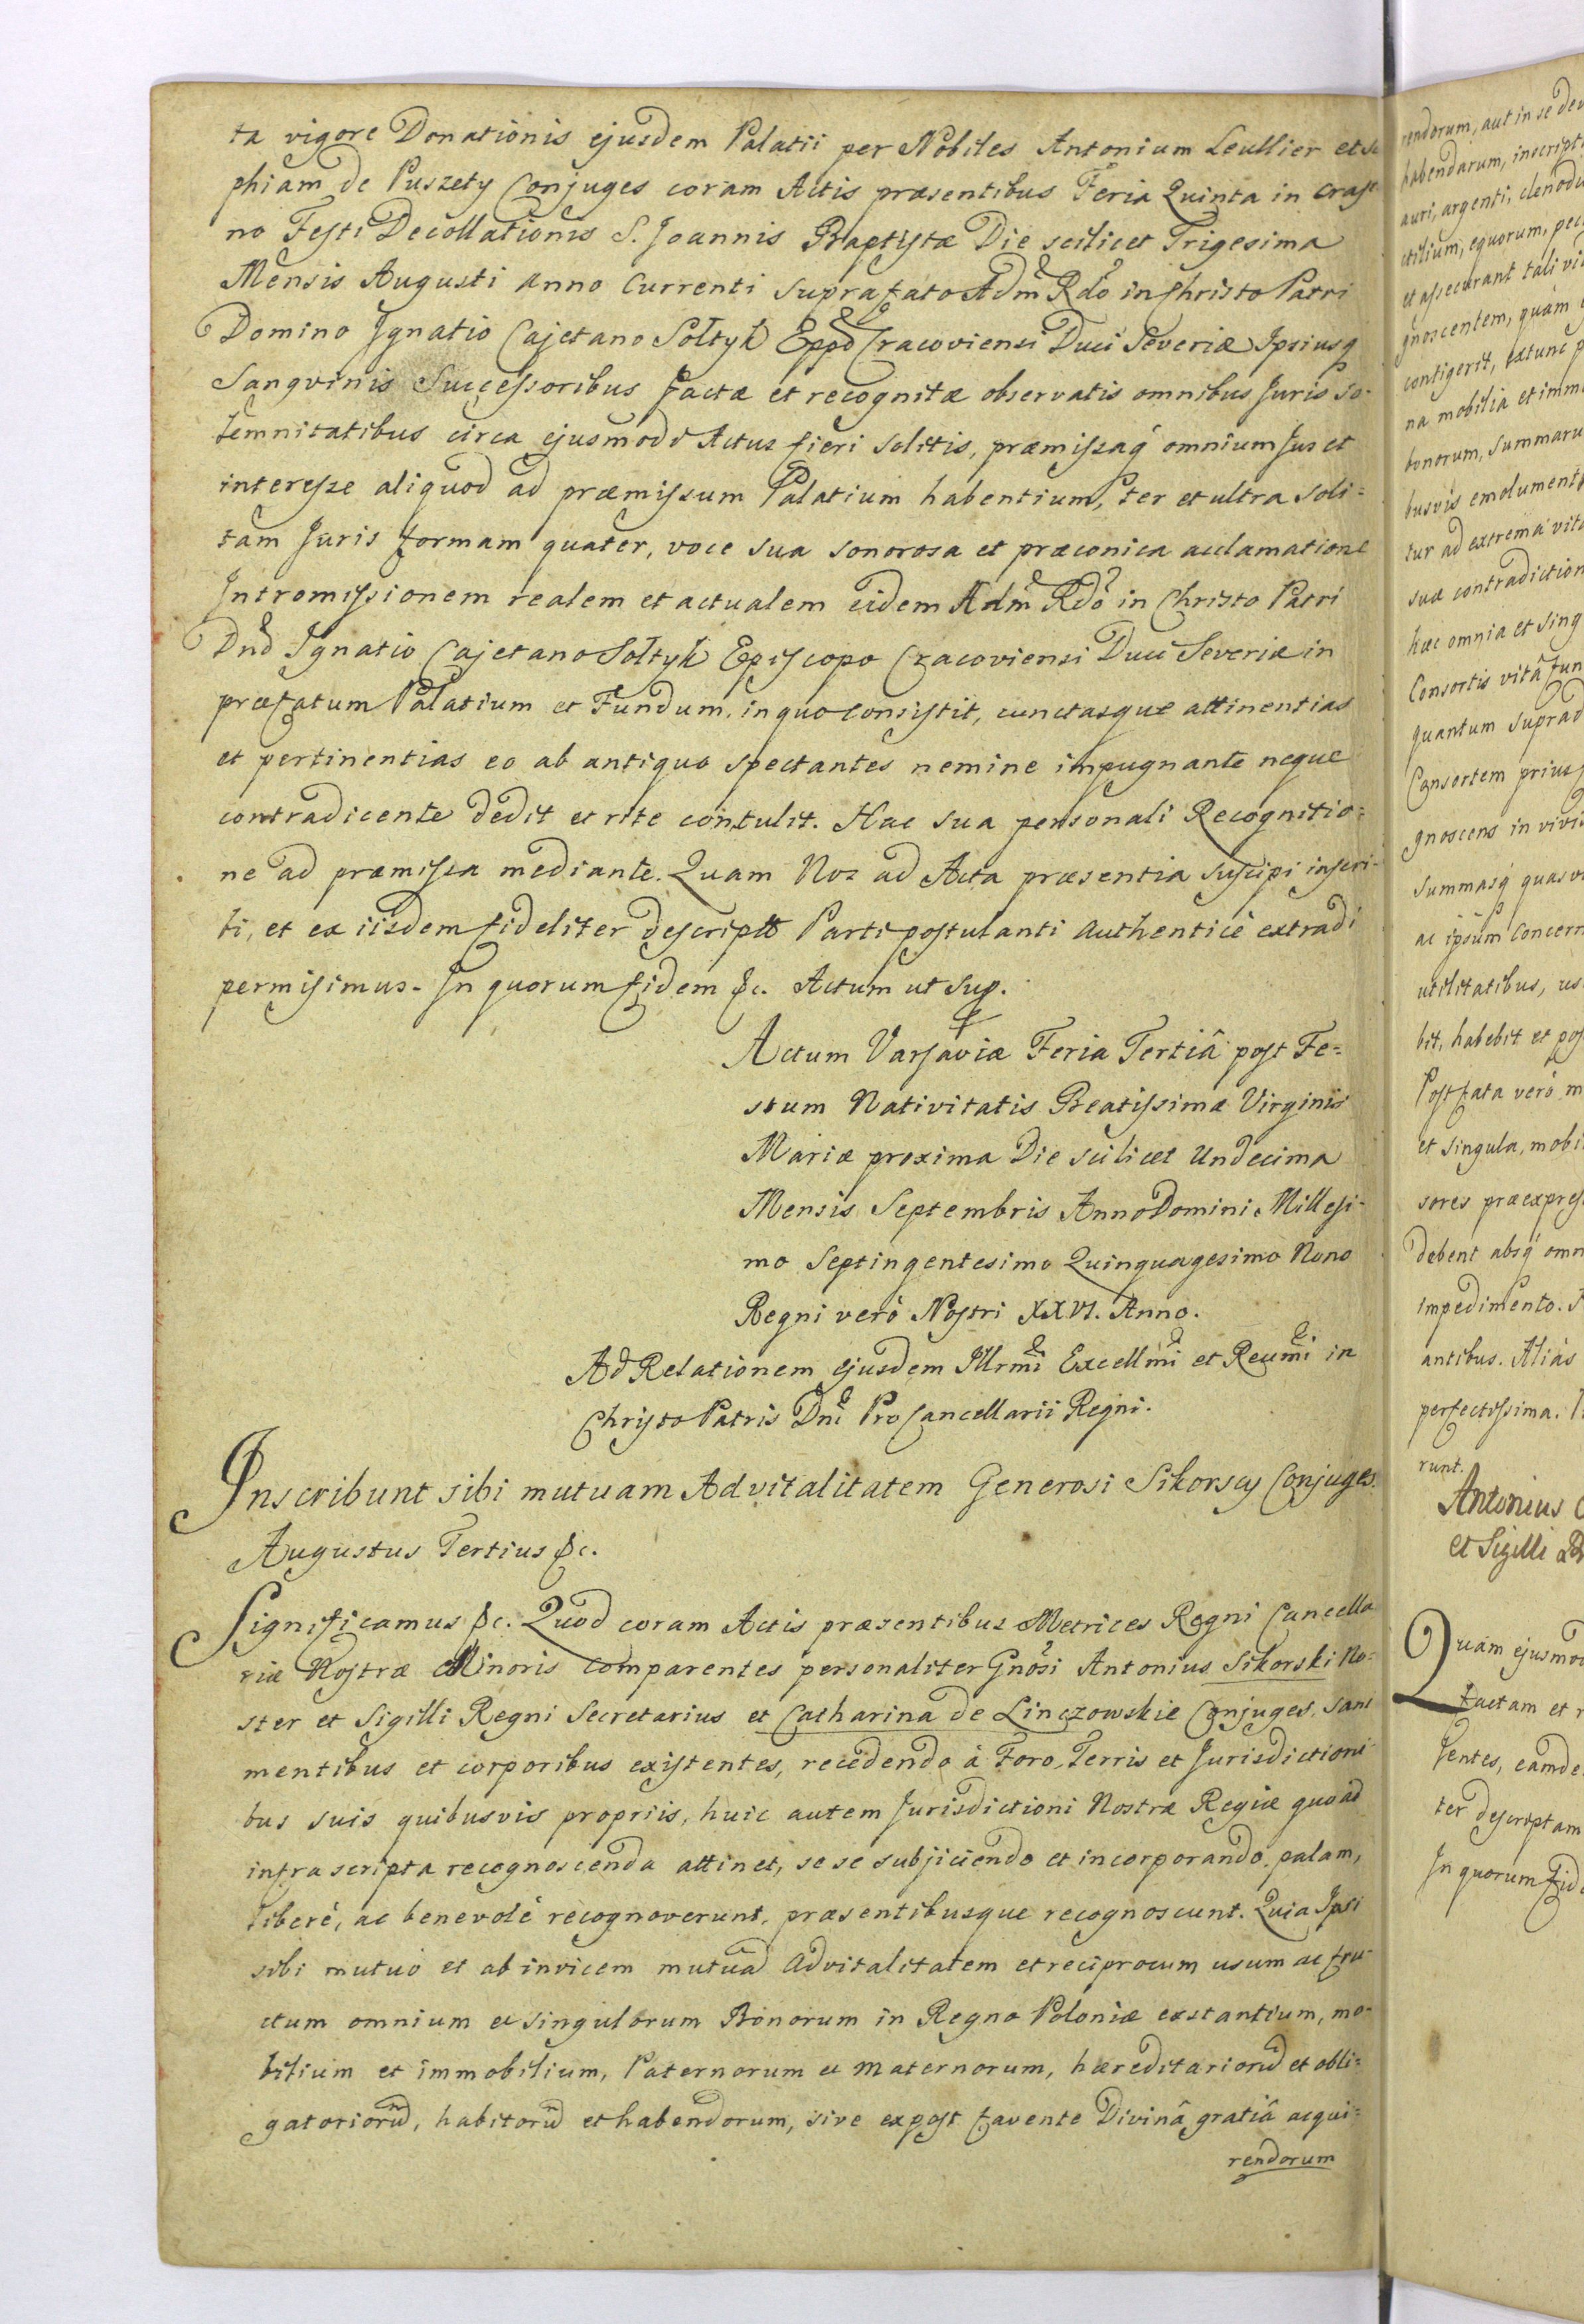 ta vigore Donationis ejusdem Palatii per Nobiles Antonium Leullier et So
phiam de Puszety Conjuges coram Actis præsentibus Feria Quinta in crasti
no Festi Decollationis S. Joannis Baptistæ Die scilicet Trigesima
Mensis Augusti Anno Currenti suprafato Adm Rdo in Christo Patri
Domino Ignatio Cajetano Sołtyk Eppo Cracoviensi Duci Severiæ Ipsiusq
Sangvinis Successoribus factæ et recognitæ observatis omnibus Juris So-
lemnitatibus circa ejusmodi Actus fieri solitis, præmissaq omnium Jus et
interesse aliquod ad præmissum Palatium habentium, ter et ultra soli=
tam Juris formam quater, voce sua sonorosa et præconica acclamatione
Intromissionem realem et actualem eidem Adm Rdo in Christo Patri
Dno Ignatio Cajetano Sołtyk Episcopo Cracoviensi Duci Severiæ in
præfatum Palatium et Fundum, in quo consistit, cunctasque attinentias
et pertinentias eo ab antiquo spectantes nemine impugnante neque
contradicente dedit et rite contulit. Hac sua personali Recognitio=
ne ad præmissa mediante. Quam Nos ad Acta præsentia suscipi inscri-
bi, et ex iisdem fideliter descriptt Parti postulanti authenticè extradi
permisimus. In quorum fidem &c. Actum ut sup.
Actum Varsaviæ Feria Tertiâ post Fe=
stum Nativitatis Beatissimæ Virginis
Mariæ proxima Die scilicet Undecima
Mensis Septembris Anno Domini Millesi-
mo Septingentesimo Quinquagesimo Nono
Regni verò Nostri XXVI. Anno.
Ad Relationem ejusdem Illrmi Excellmi et Reumi in
Christo Patris Dni Pro Cancellarii Regni.
Inscribunt sibi mutuam Advitalitatem Generosi Sikorscy Conjuges.
Augustus Tertius &c.
Significamus &c. Quod coram Actis præsentibus Metrices Regni Cancella
riæ Nostræ Minoris comparentes personaliter Gnosi Antonius Sikorski No=
ster et Sigilli Regni Secretarius et Catharina de Linczowskie Conjuges, sani
mentibus et corporibus existentes, recedendo à Foro, Terris et Jurisdictioni
bus suis quibusvis propriis, huic autem Jurisdictioni Nostræ Regiæ quoad
infra scripta recognoscenda attinet, se se subjiciendo et incorporando, palam,
liberè, ac benevolè recognoverunt, præsentibusque recognoscunt. Quia Ipsi
sibi mutuò et ab invicem mutuâ Advitalitatem et reciprocum usum ac fru-
ctum omnium et singulorum Bonorum in Regno Poloniæ exstantium, mo-
bilium et immobilium, Paternorum et Maternorum, hæreditariorũ et obli=
gatoriorũ, habitorũ et habendorum, sive expost favente Divinâ gratiâ acqui=
rendorum
rendorum, aut in se dev
habendarum, inscript
auri, argenti, clenodi
ctilium, equorum, pec
et assecurant tali vi
gnoscentem, quàm
contigerit, extunc p
na mobilia et imm
bonorum, summaru
busvis emolument
tur ad extrema vit
suæ contradiction
hæc omnia et sing
Consortis vitâ fun
quantum suprad
Consortem prius
gnoscens in vivi
summasq quasv
ac ipsum concern
utilitatibus, us
bit, habebit et pos
Post fata verò m
et singula, mobi
sores præexpres
debent absq omn
impedimento. A
antibus. Aliàs
perfectissima.
runt.
Antonius
et Sigilli
Quam ejusmod
factam et r
sentes, eamde
ter descriptam
In quorum fide